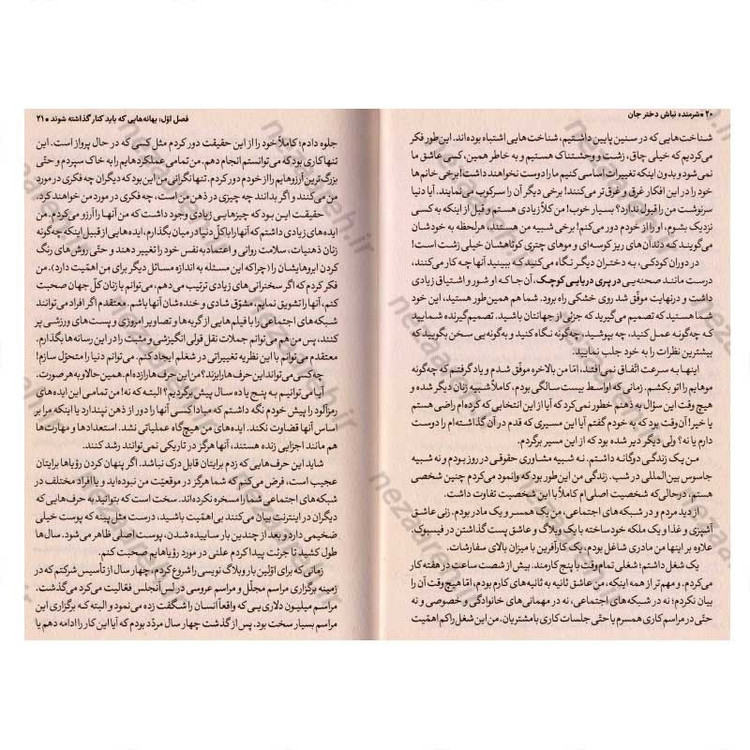 ۲۰ • شرمنده نباش دختر جان
شناخت‌هایی که در سنین پایین داشتیم، شناخت‌هایی اشتباه بوده‌اند. این‌طور فکر
می‌کردیم که خیلی چاق، زشت و وحشتناک هستیم و به خاطر همین، کسی عاشق ما
نمی‌شود و بدون اینکه تغییرات اساسی کنیم ما را دوست نخواهند داشت! برخی خانم‌ها
خود را در این افکار غرق و غرق‌تر می‌کنند! برخی دیگر آن را سرکوب می‌نمایند. آیا دنیا
سرنوشت من را قبول ندارد؟ بسیار خوب! من کلاً زیادی هستم و قبل از اینکه به کسی
نزدیک بشوم، او را از خودم دور می‌کنم! برخی شبیه من هستند، هرلحظه به خودشان
می‌گویند که دندان‌های ریز کوسه‌ای و موهای چتری کوتاهشان خیلی زشت است!
در دوران کودکی، به دختران دیگر نگاه می‌کنید که ببینید آنها چه کار می‌کنند،
درست مانند صحنه‌یی در پری دریایی کوچک، آن‌جا که او شور و اشتیاق زیادی
داشت و درنهایت موفّق شد روی خشکی راه برود. شما هم همین‌طور هستید، این خود
شما هستید که تصمیم می‌گیرید که جزئی از جهانتان باشید. تصمیم‌گیرنده شمایید
که چه‌گونه عمل کنید، چه بپوشید، چه‌گونه نگاه کنید و به‌گونه‌یی سخن بگویید که
بیشترین نظرات را به خود جلب نمایید.
اینها به سرعت اتّفاق نمی‌افتد، امّا من بالاخره موفّق شدم و یاد گرفتم که چه‌گونه
موهایم را اتو بکشم. زمانی که اواسط بیست سالگی بودم، کاملاً شبیه زنان دیگر شده و
هیچ وقت این سؤال به ذهنم خطور نمی‌کرد که آیا از این انتخابی که کرده‌ام راضی هستم
یا خیر! آن وقت بود که به خودم گفتم آیا این مسیری که قدم در آن گذاشته‌ام را دوست
دارم یا نه؟ ولی دیگر دیر شده بود که از این مسیر برگردم.
من یک زندگی دوگانه داشتم. نه شبیه مشاوری حقوقی در روز بودم و نه شبیه
جاسوس بین‌المللی در شب. زندگی من این‌طور بود که وانمود می‌کردم چنین شخصی
هستم، درحالی‌که شخصیت اصلی‌ام کاملاً با این شخصیت تفاوت داشت.
از دید مردم و در شبکه‌های اجتماعی، من یک همسر و یک مادر بودم. زنی عاشق
آشپزی و غذا و یک ملکه خودساخته با یک وبلاگ و عاشق پست گذاشتن در فیسبوک.
علاوه بر اینها من مادری شاغل بودم. یک کارآفرین با میزان بالای سفارشات.
یک شغل داشتم؛ شغلی تمام وقت با پنج کارمند. بیش از شصت ساعت در هفته کار
می‌کردم. و مهم‌تر از همه اینکه، من عاشق ثانیه به ثانیه‌های کارم بودم، امّا هیچ وقت آن را
بیان نکردم؛ نه در شبکه‌های اجتماعی، نه در مهمانی‌های خانوادگی و خصوصی و نه
حتّی در مراسم کاری همسرم یا حتّی جلسات کاری با مشتریان. من این شغل را کم اهمّیت
فصل اوّل: بهانه‌هایی که باید کنار گذاشته شوند • ۲۱
جلوه دادم؛ کاملاً خود را از این حقیقت دور کردم مثل کسی که در حال پرواز است. این
تنها کاری بود که می‌توانستم انجام دهم. من تمامی عملکردهایم را به خاک سپردم و حتّی
بزرگ‌ترین آرزوهایم را از خودم دور کردم. تنها نگرانی من این بود که دیگران چه فکری در مورد
من می‌کنند و اگر بدانند چه چیزی در ذهن من است، چه فکری در مورد من خواهند کرد.
حقیقت این بود که چیزهایی زیادی وجود داشت که من آنها را آرزو می‌کردم. من
ایده‌های زیادی داشتم که آنها را با کلّ دنیا در میان بگذارم، ایده‌هایی از قبیل اینکه چه‌گونه
زنان ذهنیات، سلامت روانی و اعتمادبه‌نفس خود را تغییر دهند و حتّی روش‌های رنگ
کردن ابروهایشان را (چرا که این مسئله به اندازه مسائل دیگر برای من اهمّیت دارد). من
فکر کردم که اگر سخنرانی‌های زیادی ترتیب می‌دهم، می‌توانم با زنان کلّ جهان صحبت
کنم، آنها را تشویق نمایم، مشوّق شادی و خنده‌شان آنها باشم. معتقدم اگر افراد می‌توانند
شبکه‌های اجتماعی را با فیلم‌هایی از گربه‌ها و تصاویر امروزی و پست‌های ورزشی پر
کنند، پس من هم می‌توانم جملات نقل قولی انگیزشی و مثبت را در این رسانه‌ها بگذارم.
معتقدم می‌توانم با این نظریه تغییراتی در شغلم ایجاد کنم. می‌توانم دنیا را متحوّل سازم!
چه کسی می‌تواند این حرف‌ها را بزند؟ من! این حرف‌ها را زده‌ام. همین حالا و به هر صورت.
آیا می‌توانیم به پنج یا ده سال پیش برگردیم؟ البتّه که نه! من تمامی این ایده‌های
رمزآلود را پیش خودم نگه داشتم که مبادا کسی آنها را دور از ذهن نپندارد یا اینکه مرا بر
اساس آنها قضاوت نکند. ایده‌های من هیچ‌گاه عملیاتی نشد. استعدادها و مهارت‌ها
هم مانند اجزایی زنده هستند، آنها هرگز در تاریکی نمی‌توانند رشد کنند.
شاید این حرف‌هایی که زدم برایتان قابل درک نباشد. اگر پنهان کردن رؤیاها برایتان
عجیب است، فرض می‌کنم که شما هرگز در موقعیّت من نبوده‌اید و یا افراد مختلف در
شبکه‌های اجتماعی شما را مسخره نکرده‌اند. سخت است که بتوانید به حرف‌هایی که
دیگران در اینترنت بیان می‌کنند بی‌اهمّیت باشید، درست مثل پینه که پوست خیلی
ضخیمی دارد و بعد از چندین بار ساییده شدن، پوست اصلی ظاهر می‌شود. سال‌ها
طول کشید تا جرئت پیدا کردم علنی در مورد رؤیاهایم صحبت کنم.
زمانی که برای اوّلین بار وبلاگ نویسی را شروع کردم، چهار سال از تأسیس شرکتم که در
زمینه برگزاری مراسم مجلّل و مراسم عروسی در لس‌آنجلس فعّالیت می‌کرد می‌گذشت.
مراسم میلیون دلاری یی که واقعاً انسان را شگفت زده می‌نمود و البتّه که برگزاری این
مراسم بسیار سخت بود. پس از گذشت چهار سال مردّد بودم که آیا این کار را ادامه دهم یا